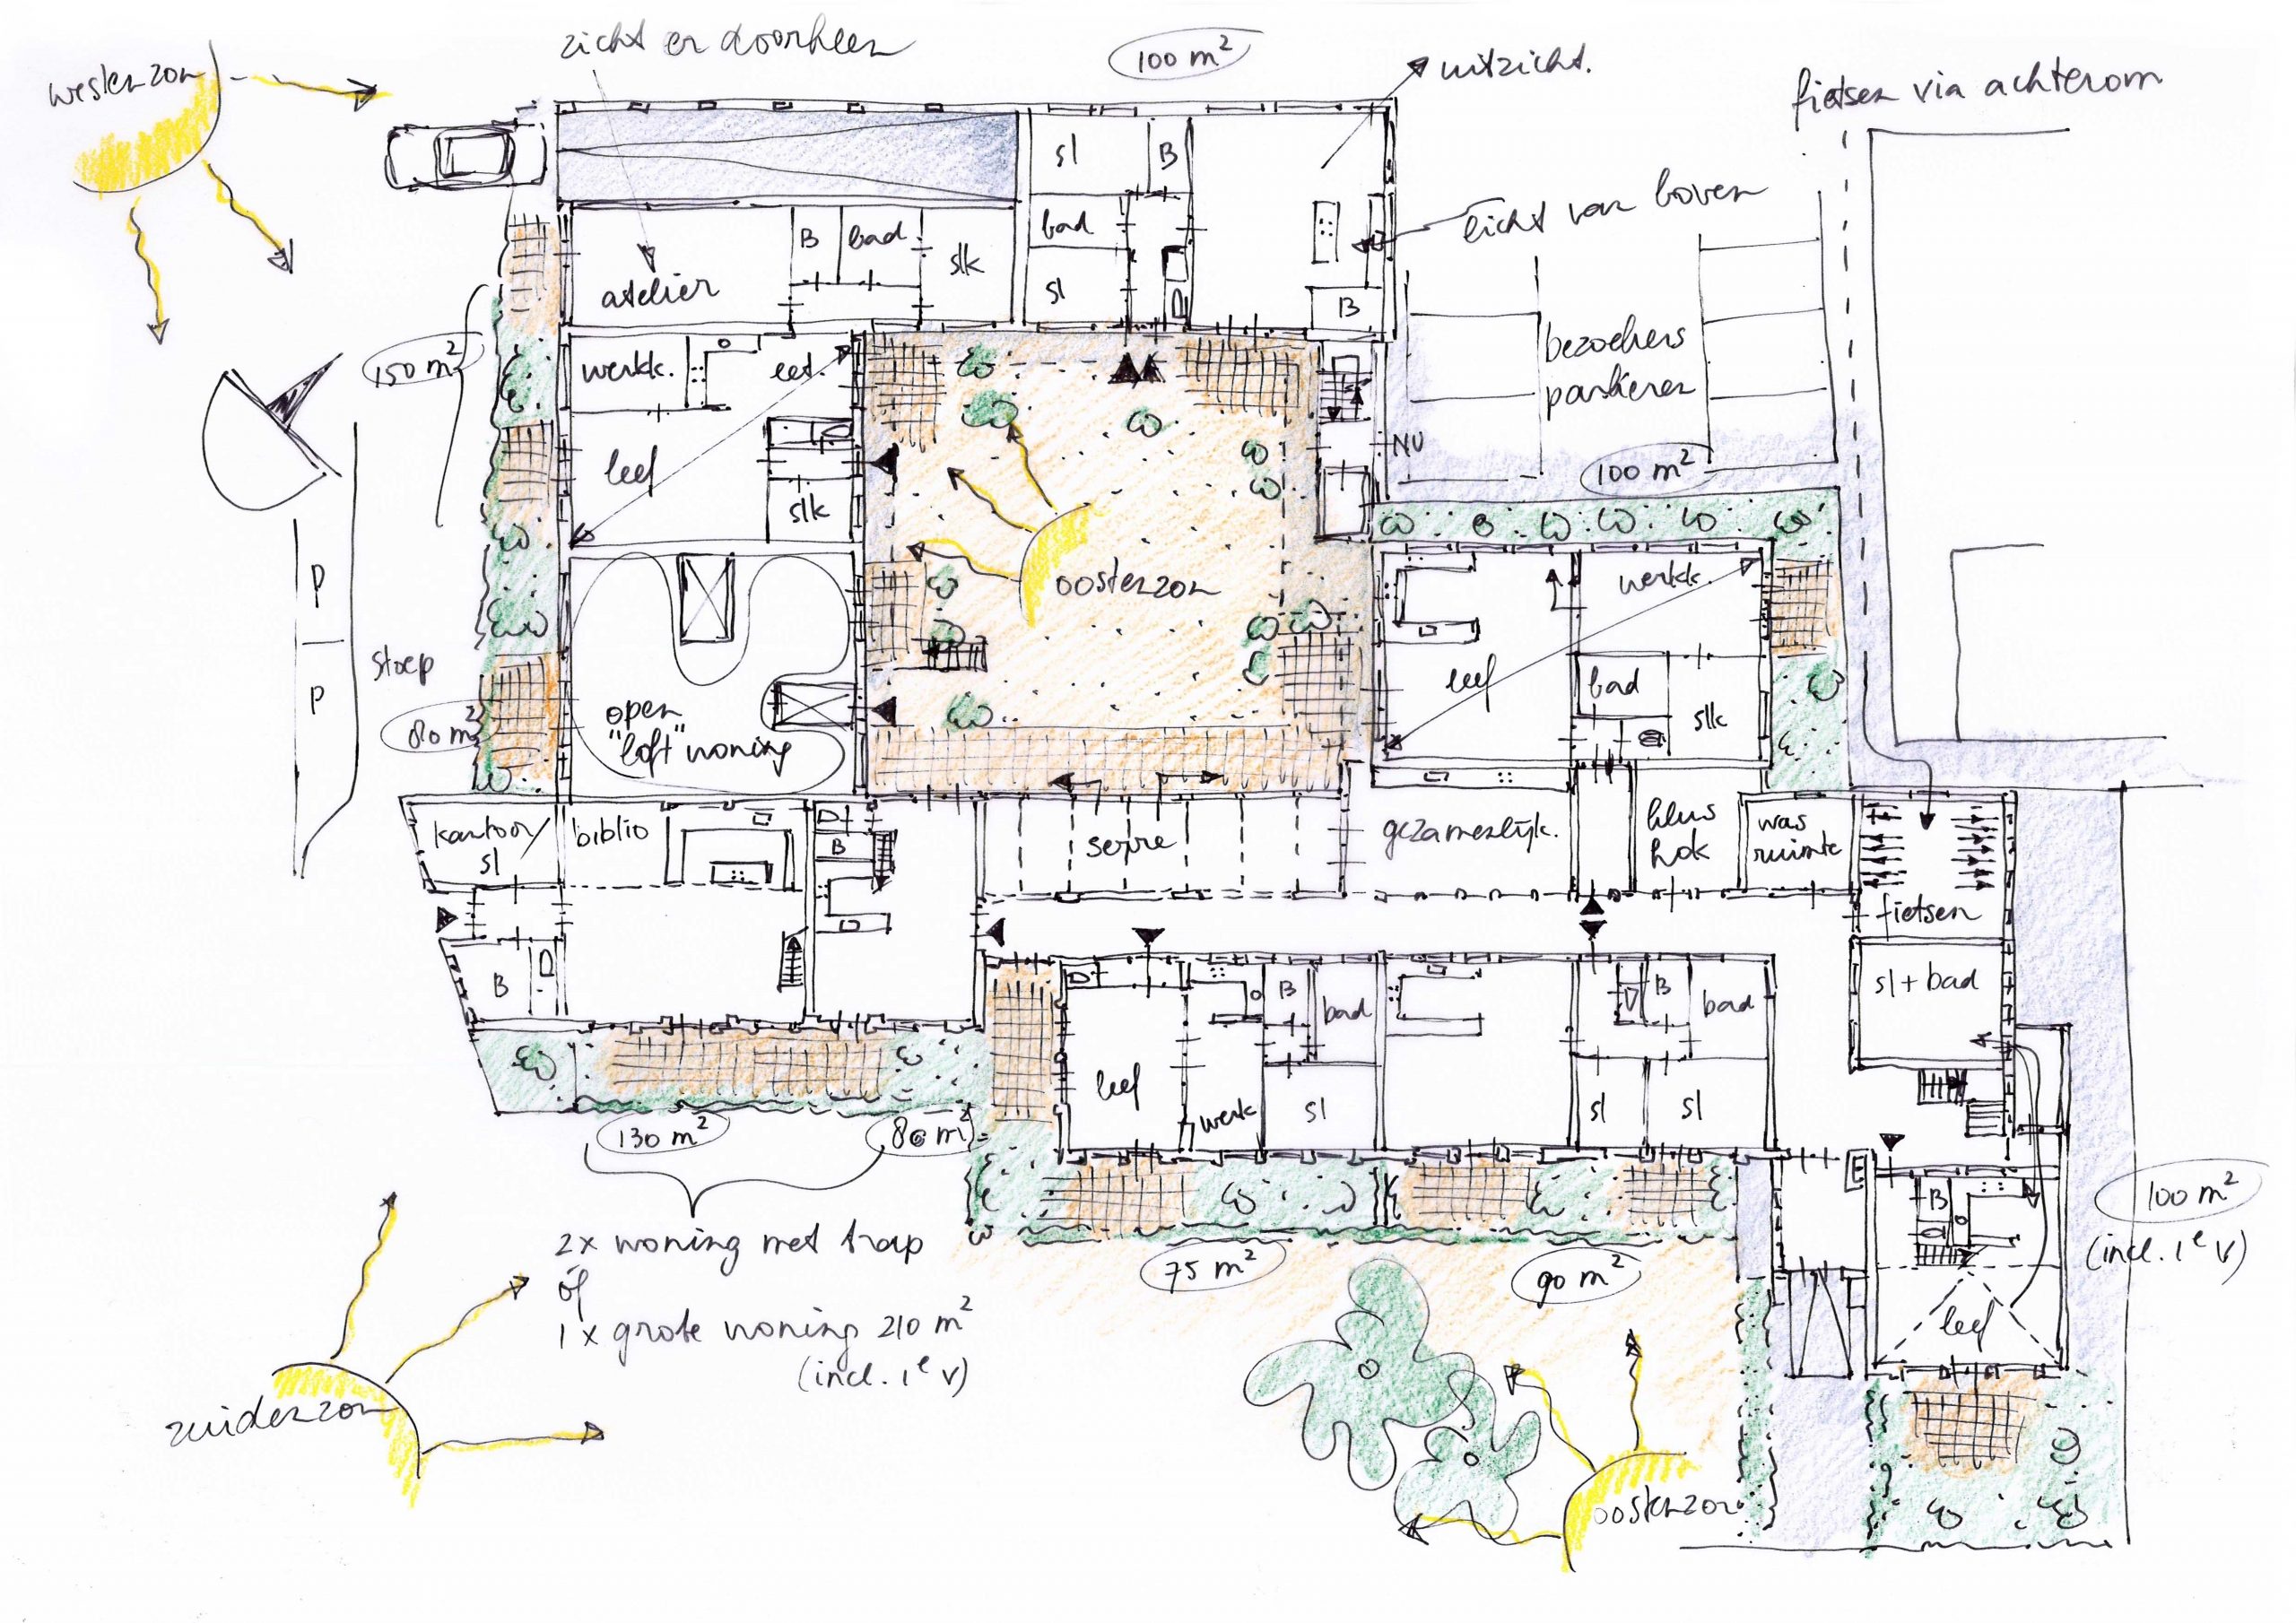 zicht er doorheen
100 m²
uitzicht.
fietsen via achterom
westerzon
sl
B
licht van boven
bad
B
bad
slk
atelier
sl
B
bezoekers
parkeren
150 m²
werkk.
eet.
leef
slk
NU
100 m²
N
oosterzon
werkk.
leef
bad
slk
P
P
stoep
80 m²
open
"loft" woning
kantoor/
sl
biblio
B
serre
gezamenlijk.
klus
hok
was
ruimte
fietsen
B
sl + bad
leef
werk
B
bad
sl
B
bad
sl
sl
130 m²
80 m²
75 m²
90 m²
B
leef
100 m²
(incl. 1e v)
2x woning met trap
óf
1x grote woning 210 m²
(incl. 1e v)
zuiderzon
oosterzon